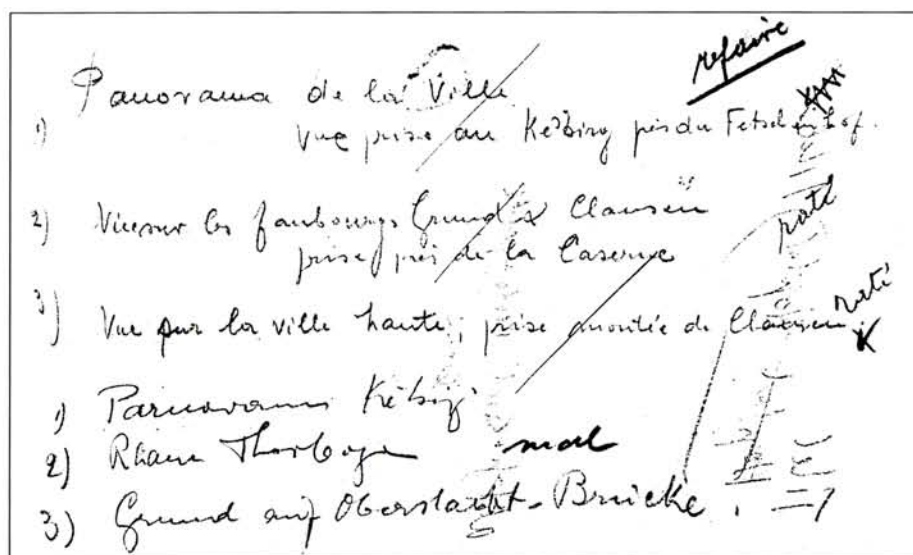 refaire
Panorama de la Ville
1) Vue prise au Kêbierg près du Fetschenhof.
2) Vue sur les faubourgs Grund & Clausen
raté
prise près de la Caserne
raté
3) Vue sur la ville haute, prise montée de Clausen
1) Panorama
2) Rham mal
3) Grund auf Oberstadt-Brücke.